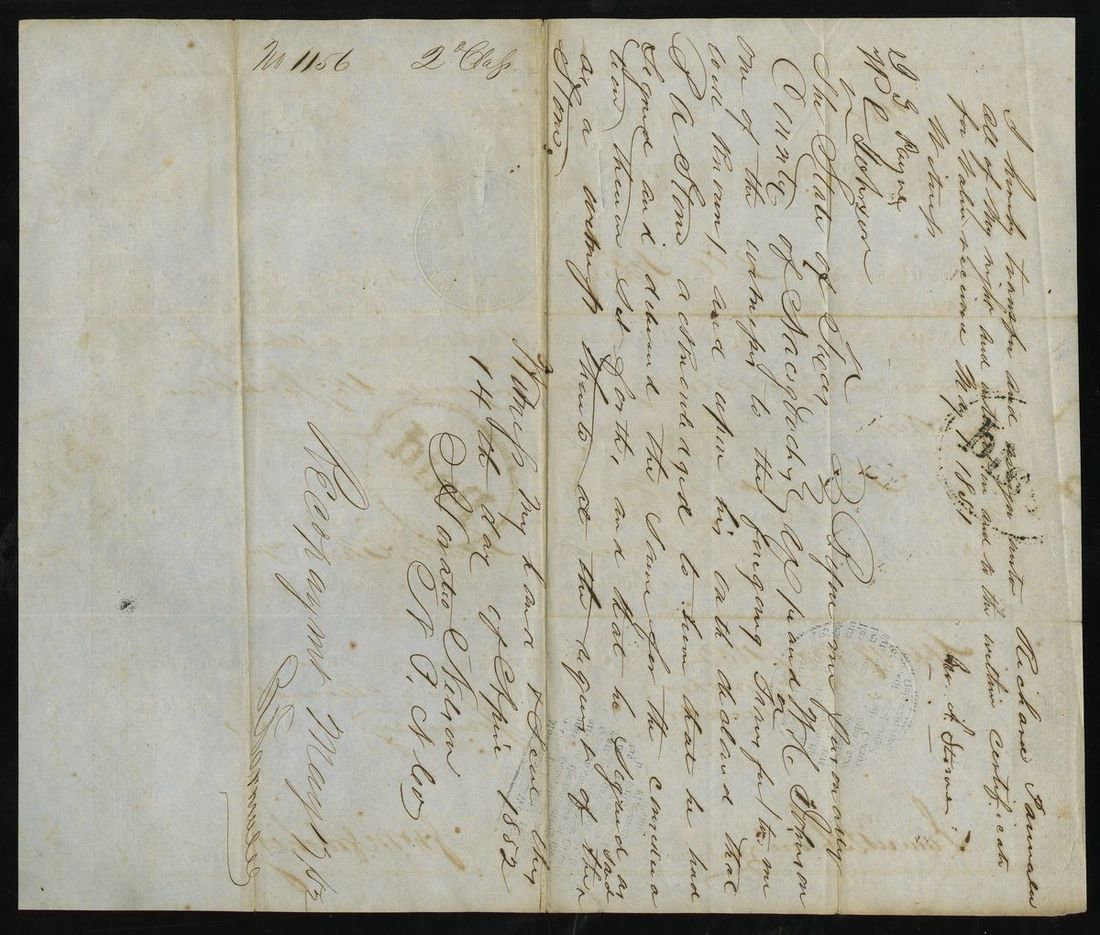 No 1156
2d Class.
I hereby transfer and assign unto Richard Parmalee
all of my right and interest in and to the within certificate
for value received May 1851
Witness
Wm. A. Stone.
J. J. Hayne
W C Johnson
The State of Texas
County of Nacogdoches
Before me personally
appeared W C Johnson
one of the witnesses to the foregoing Transfer to me
well known, and upon his oath declared that
Stone acknowledged to him that he had
signed and delivered the same for the considera
tion therein set forth, and that he signed as
as a witness thereto at the request of the sd
Stone,
Witness my hand & seal this
14th day of April 1852
Horatio Nelson
N. P. N. Co
Recd payment May 1/62